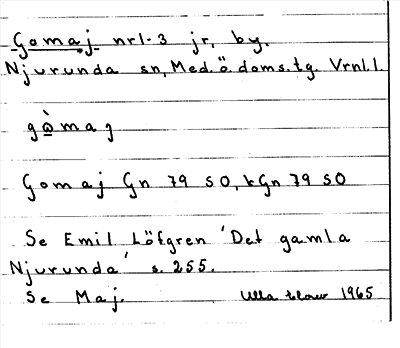 Gomaj nr 1-3 jr, by.
Njurunda sn, Med. ö. doms. tg. Vrnl. l.
gòmaj
Gomaj Gn 79 SO, kGn 79 SO
Se Emil Löfgren 'Det gamla
Njurunda' s. 255.
Se Maj. Ulla 1965